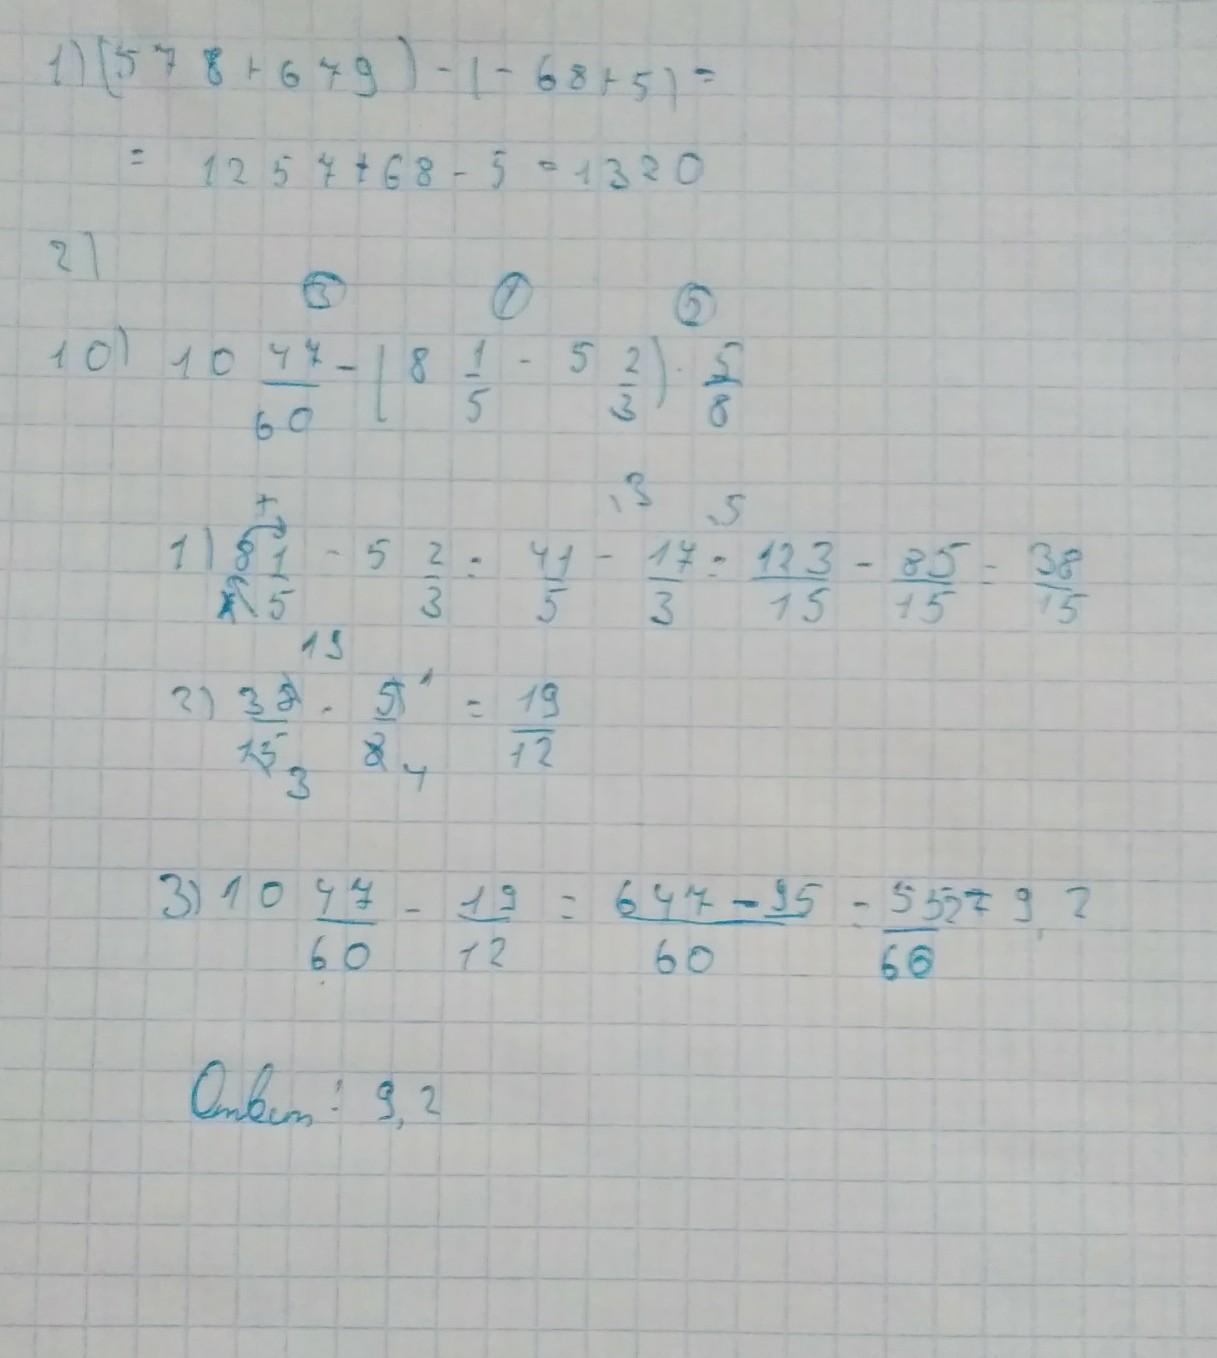 1) (578+679) - (-68+5) =
= 1257+68-5 = 1320
2)
③ ① ②
10) 10 47/60 - (8 1/5 - 5 2/3) · 5/8
+ .3 .5
1) 8 1/5 - 5 2/3 = 41/5 - 17/3 = 123/15 - 85/15 = 38/15
19 1
2) 38/15 · 5/8 = 19/12
3 4
3) 10 47/60 - 19/12 = 647-95/60 = 552/60 = 9,2
Ответ: 9,2